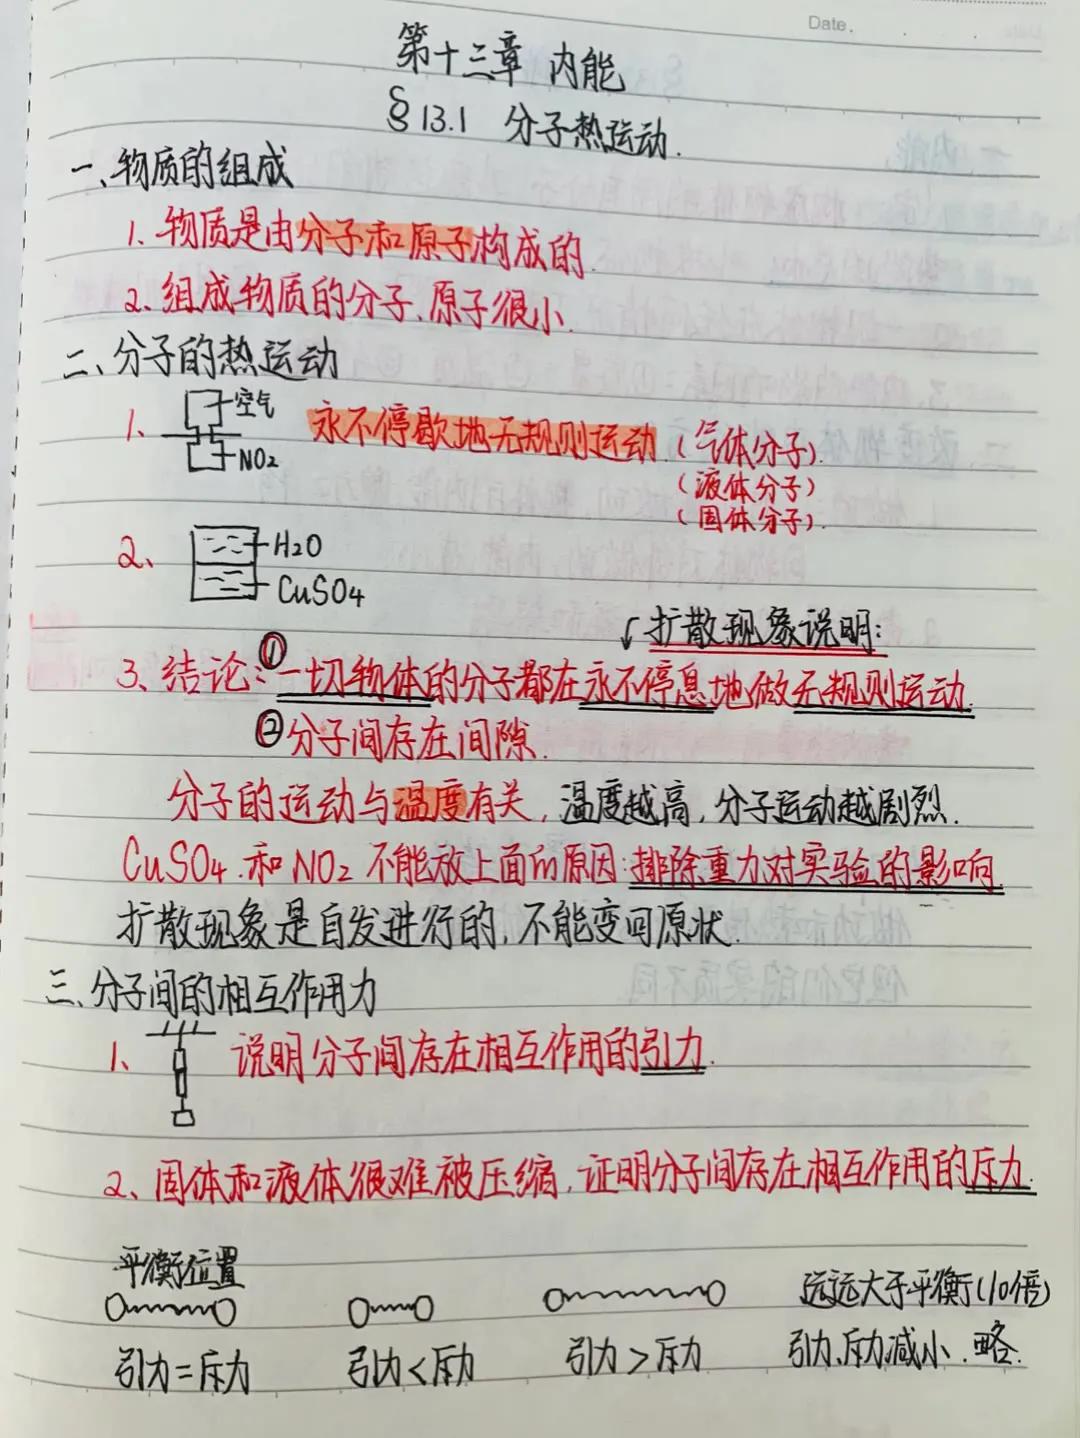 Date.
第十三章 内能
§13.1 分子热运动.
一、物质的组成
1、物质是由分子和原子构成的.
2、组成物质的分子、原子很小.
二、分子的热运动
1、 空气 永不停歇地无规则运动.(气体分子).
NO2 (液体分子)
(固体分子).
2、 H2O
CuSO4
扩散现象说明:
3、结论:①一切物体的分子都在永不停息地做无规则运动.
②分子间存在间隙.
分子的运动与温度有关,温度越高,分子运动越剧烈.
CuSO4.和NO2不能放上面的原因:排除重力对实验的影响.
扩散现象是自发进行的,不能变回原状.
三、分子间的相互作用力
1、 说明分子间存在相互作用的引力.
2、固体和液体很难被压缩,证明分子间存在相互作用的斥力.
平衡位置 远远大于平衡(10倍)
引力=斥力 引力<斥力 引力>斥力 引力、斥力减小.略.